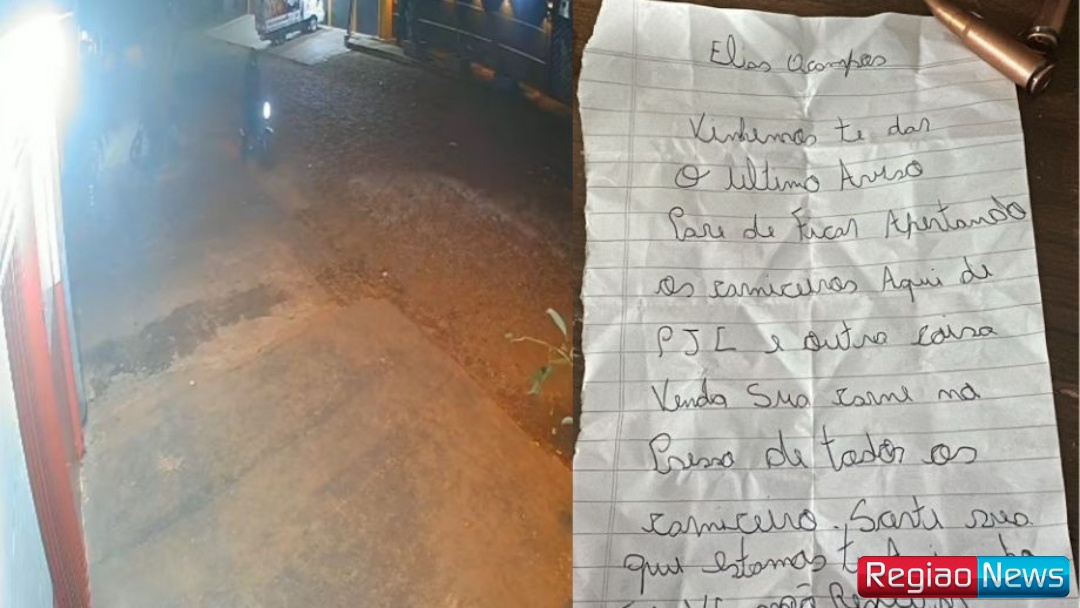 Elias Ocampos
Vinhemos te dar
O ultimo Aviso
Pare de Ficar Apertando
os carniceiros Aqui de
PJC e outra coisa
Venda Sua carne no
Presso de todos os
carniceiro. Sorti sua
que estamos t
não
Regiao News